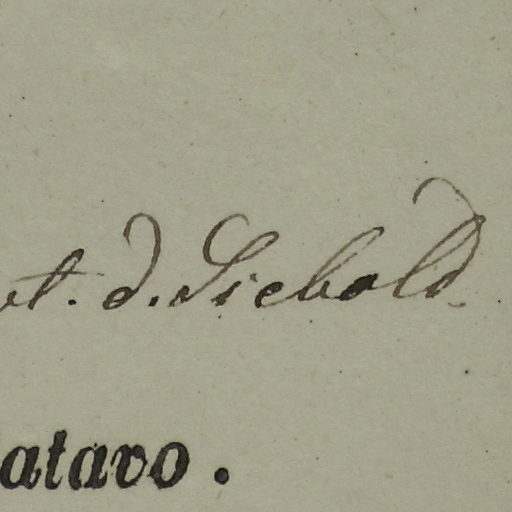 t. d. Siebold
atavo.